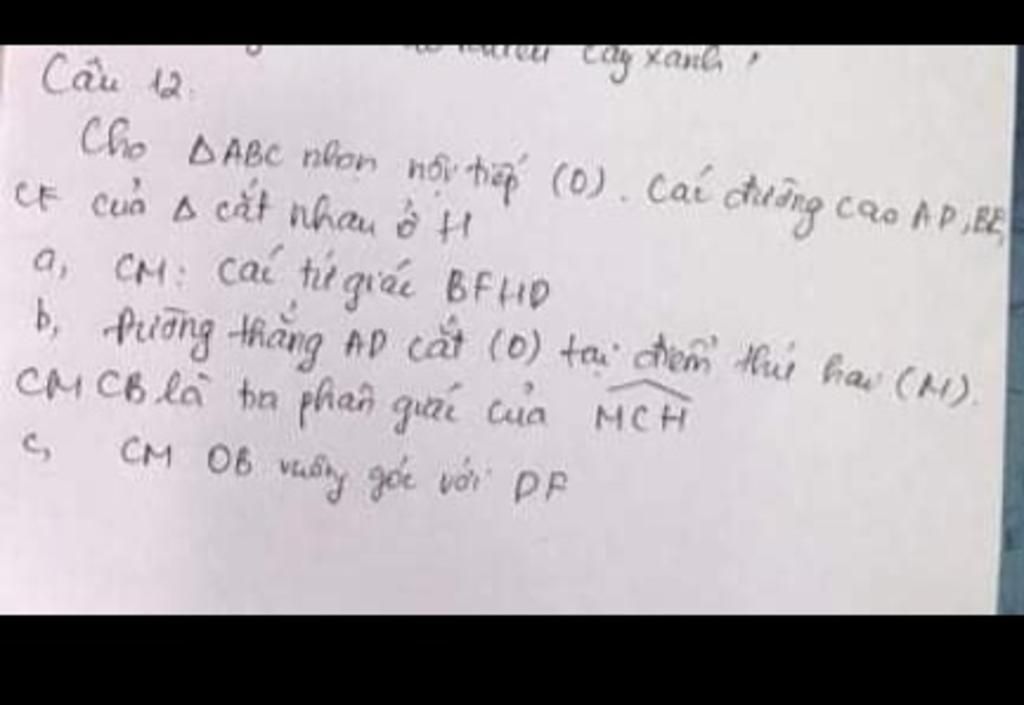 cây xanh,
Câu 12.
Cho ΔABC nhọn nội tiếp (O). Các đường cao AD, BE,
CF của Δ cắt nhau ở H
a, CM: Các tứ giác BFHD
b, Đường thẳng AD cắt (O) tại điểm thứ hai (M).
CM CB là tia phân giác của MCH
c, CM OB vuông góc với DF